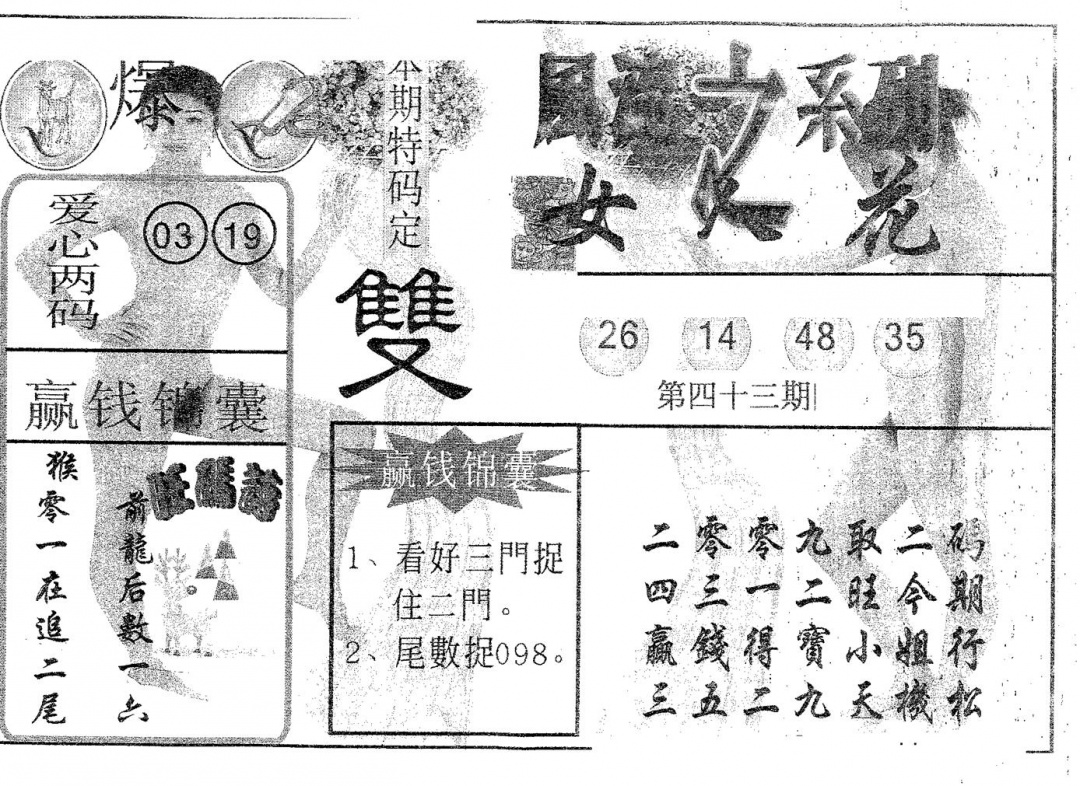 爆
本期特码定
雙
之系列
女人花
爱心两码
03 19
26 14 48 35
第四十三期
赢钱锦囊
前龍后数一六
猴零一在追二尾
赢钱锦囊
1、看好三門捉
住二門。
2、尾數捉098。
二零零九取二码
四三一二旺今期
赢錢得寶小姐行
三五二九天機松